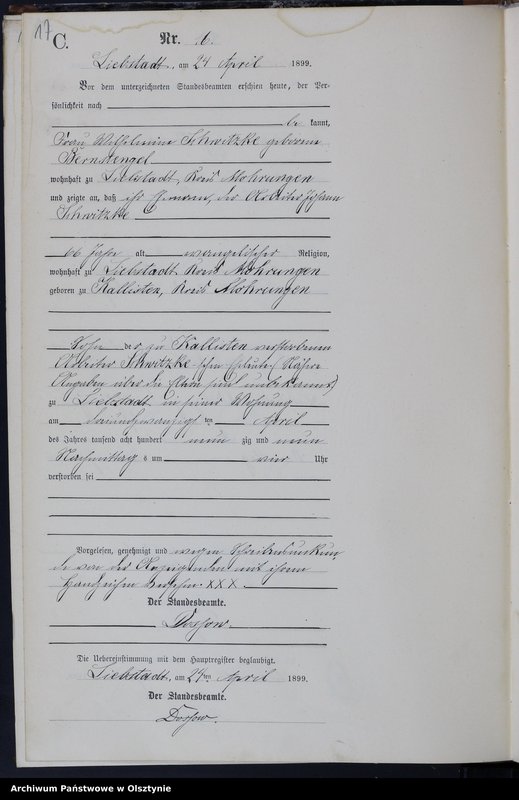 17
C.
Nr. 6.
Liebstadt, am 24 April 1899.
Vor dem unterzeichneten Standesbeamten erschien heute, der Per-
sönlichkeit nach
be kannt,
Frau Wilhelmine Schwitzke geborene
Bernstengel
wohnhaft zu Liebstadt, Kreis Mohrungen
und zeigte an, daß ihr Ehemann, der Arbeiter Johann
Schwitzke
66 Jahre alt, evangelischer Religion,
wohnhaft zu Liebstadt Kreis Mohrungen
geboren zu Kallisten, Kreis Mohrungen
Sohn der zu Kallisten verstorbenen
Arbeiter Schwitzke schen Eheleute (Nähere
Angaben über die Eltern sind unbekannt)
zu Liebstadt in seiner Wohnung
am dreiundzwanzigsten ten April
des Jahres tausend acht hundert neun zig und neun
Nachmittags um vier Uhr
verstorben sei
Vorgelesen, genehmigt und wegen Schreibensunkun
de von der Anzeigenden mit ihrem
Handzeichen versehen XXX.
Der Standesbeamte.
Dossow.
Die Uebereinstimmung mit dem Hauptregister beglaubigt.
Liebstadt, am 24ten April 1899.
Der Standesbeamte.
Dossow.
Archiwum Państwowe w Olsztynie